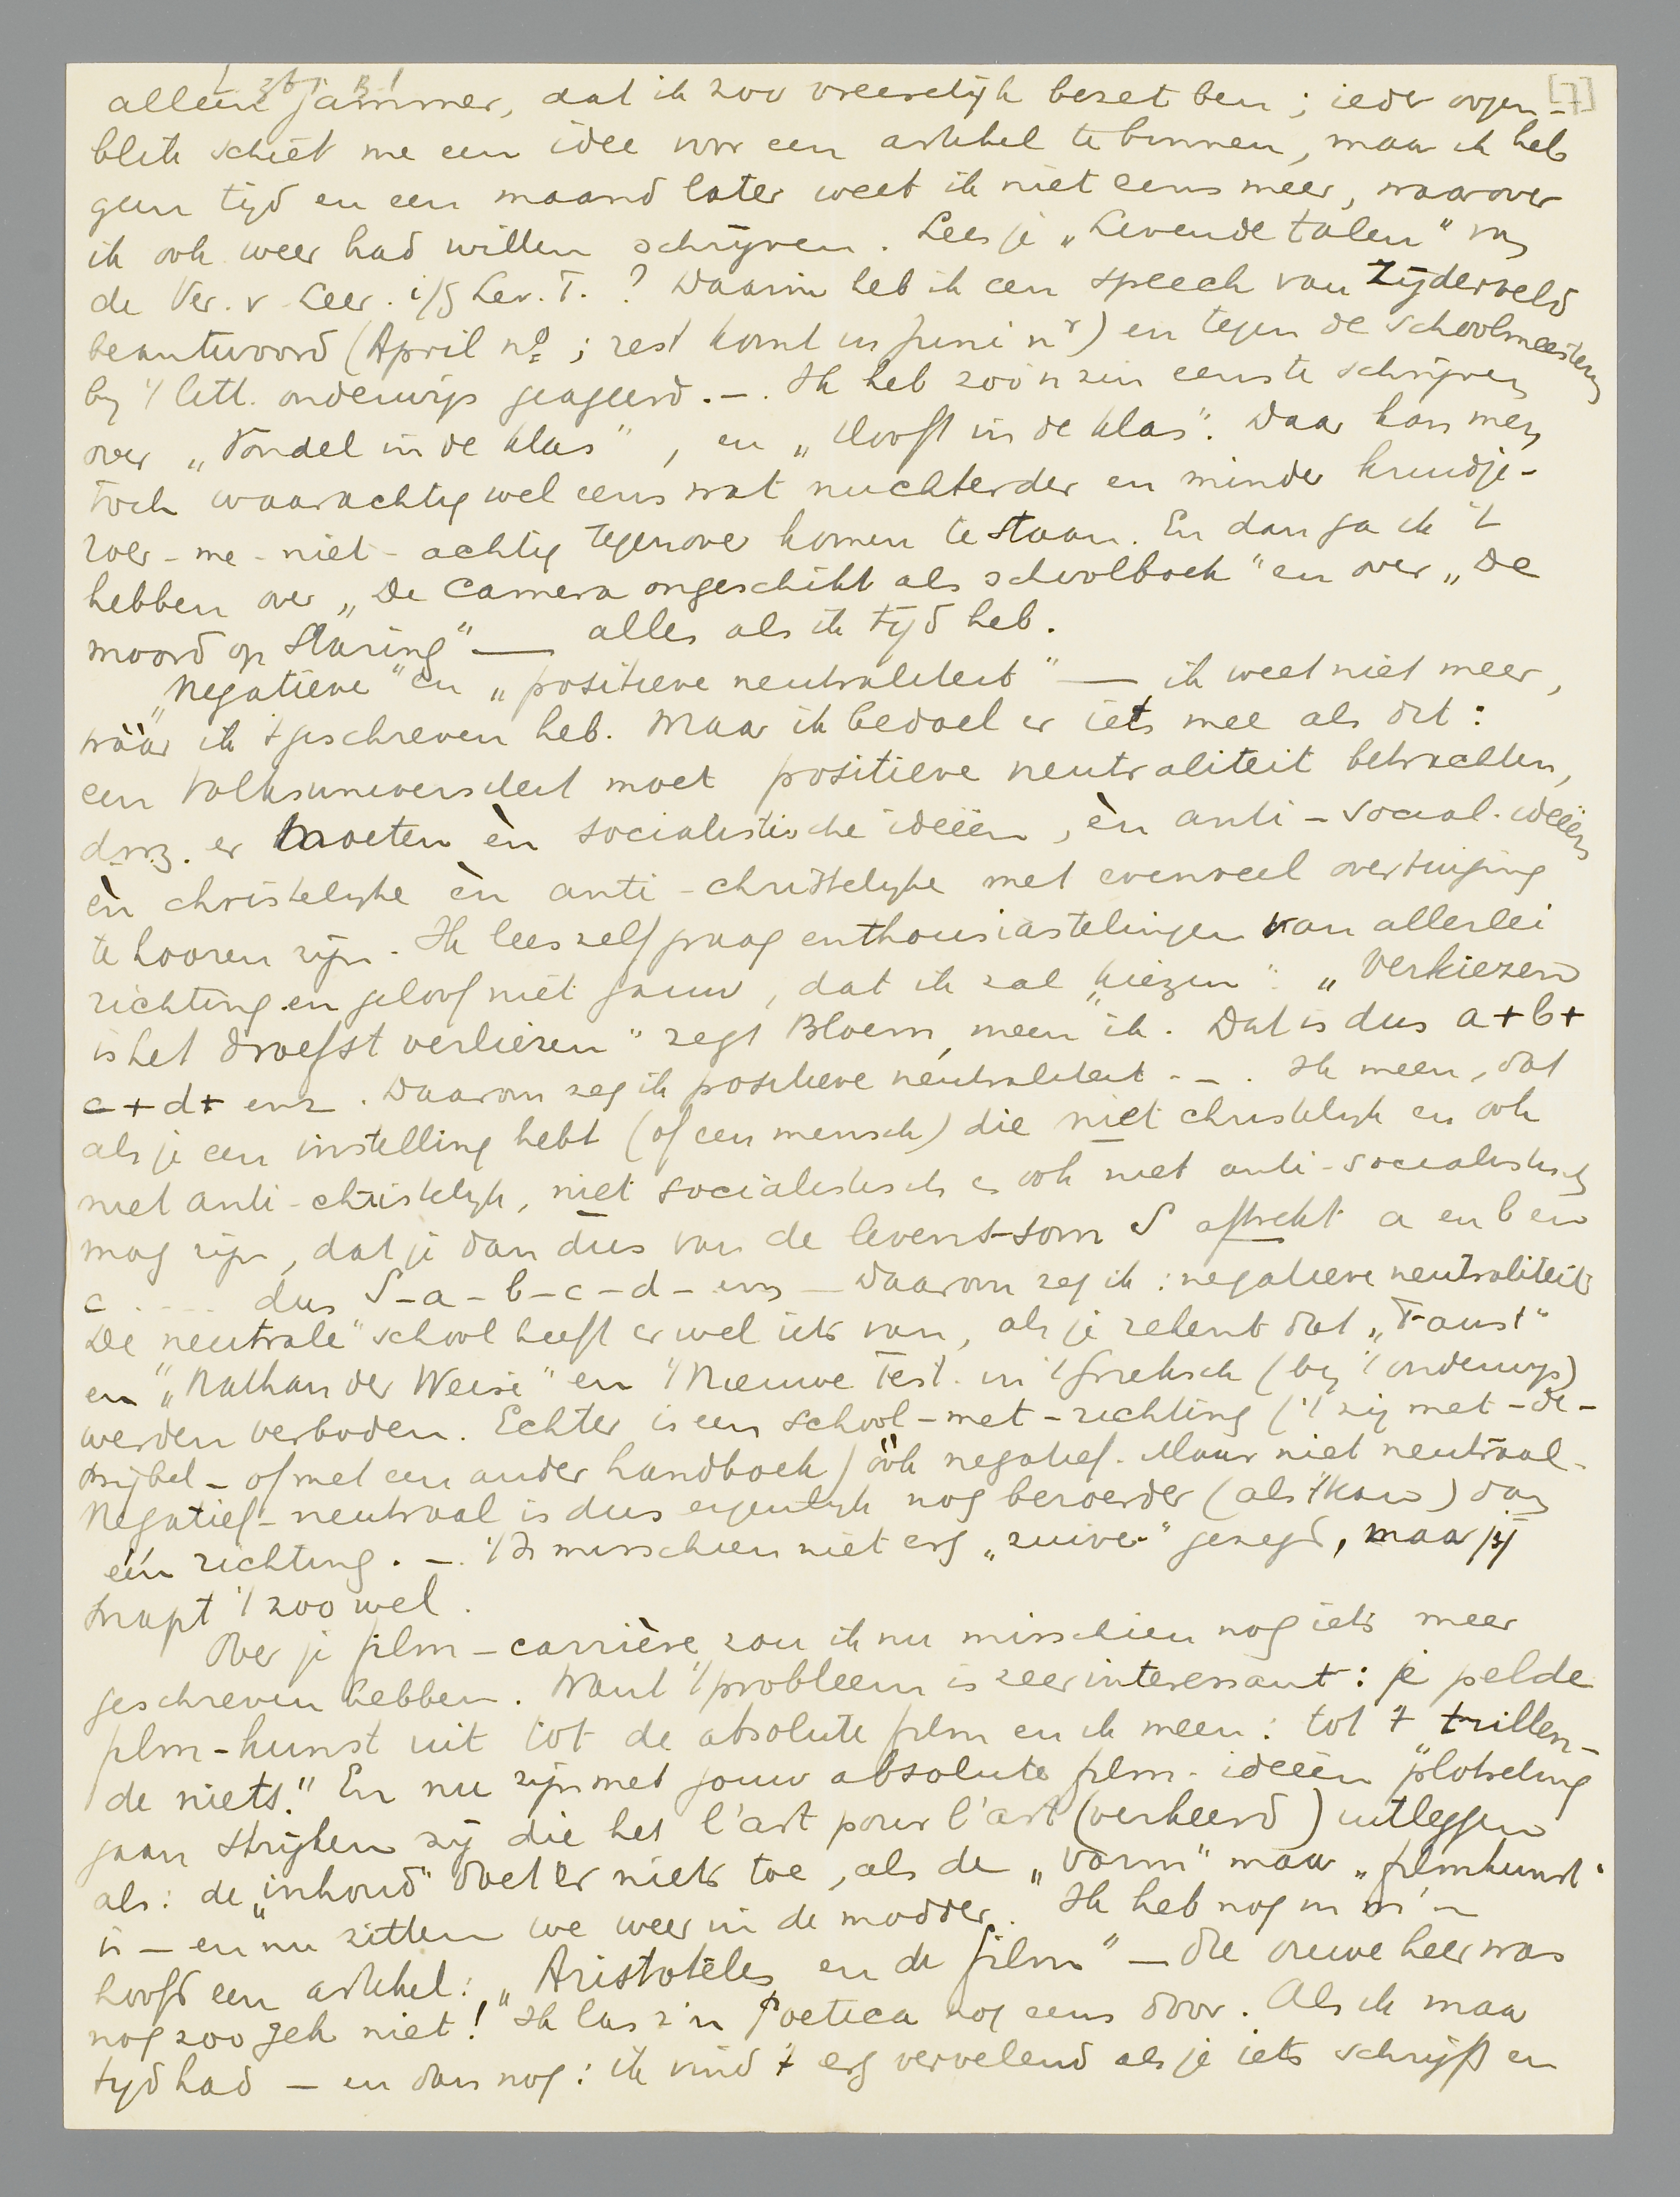 [7]
alleen jammer, dat ik zoo vreeselijk bezet ben; ieder oogen-
blik schiet me een idee voor een artikel te binnen, maar ik heb
geen tijd en een maand later weet ik niet eens meer, waarover
ik ook weer had willen schrijven. Lees je „Levende talen" van
de Ver. v. Leer. i/d Lev. T.? Daarin heb ik een speech van Zijderveld
beantwoord (April no; rest komt in Juni nr) en tegen de schoolmeesters
bij 't litt. onderwijs geageerd. —. Ik heb zoo'n zin eens te schrijven
over „Vondel in de klas", en „Hooft in de klas". Daar kan men
toch waarachtig wel eens wat nuchterder en minder kruidje-
roer-me-niet-achtig tegenover komen te staan. En dan ga ik 't
hebben over „De Camera ongeschikt als schoolboek" en over „De
moord op Staring" — alles als ik tijd heb.
„Negatieve" en „positieve neutraliteit" — ik weet niet meer,
wáár ik 't geschreven heb. Maar ik bedoel er iets mee als dit:
een volksuniversiteit moet positieve neutraliteit betrachten,
d.w.z. er moeten èn socialistische ideeën, èn anti-social. ideeën
èn christelijke èn anti-christelijke met evenveel overtuiging
te hooren zijn. Ik lees zelf graag enthousiastelingen van allerlei
richting en geloof niet gauw, dat ik zal „kiezen": „Verkiezen
is het droefst verliezen" zegt Bloem, meen ik. Dat is dus a+b+
c+d+ enz. Daarom zeg ik positieve neutraliteit. —. Ik meen, dat
als je een instelling hebt (of een mensch) die niet christelijk en ook
niet anti-christelijk, niet socialistisch en ook niet anti-socialistisch
mag zijn, dat je dan dus van de levens-som S aftrekt a en b en
c .... dus S-a-b-c-d-enz — Daarom zeg ik: negatieve neutraliteit.
De „neutrale" school heeft er wel iets van, als je rekent dat „Faust"
en „Nathan der Weise" en 't Nieuwe Test. in 't Grieksch (bij 't onderwijs)
werden verboden. Echter is een school-met-richting ('t zij met-de-
bijbel- of met een ander handboek) óók negatief. Maar niet neutraal.
Negatief-neutraal is dus eigenlijk nog beroerder (als 't kan) dan
één richting. —. 't Is misschien niet erg „zuiver" gezegd, maar jij
snapt 't zoo wel.
Over je film-carrière zou ik nu misschien nog iets meer
geschreven hebben. Want 't probleem is zeer interessant: je pelde
film-kunst uit tot de absolute film en ik meen: tot 't „trillen-
de niets." En nu zijn met jouw absolute film-ideeën plotseling
gaan strijken zij die het l'art pour l'art (verkeerd) uitleggen
als: de „inhoud" doet er niets toe, als de „vorm" maar „filmkunst"
is — en nu zitten we weer in de modder. Ik heb nog in m'n
hoofd een artikel: „Aristoteles en de film" — die ouwe heer was
nog zoo gek niet! Ik las z'n Poetica nog eens door. Als ik maar
tijd had — en dan nog: ik vind 't erg vervelend als je iets schrijft en